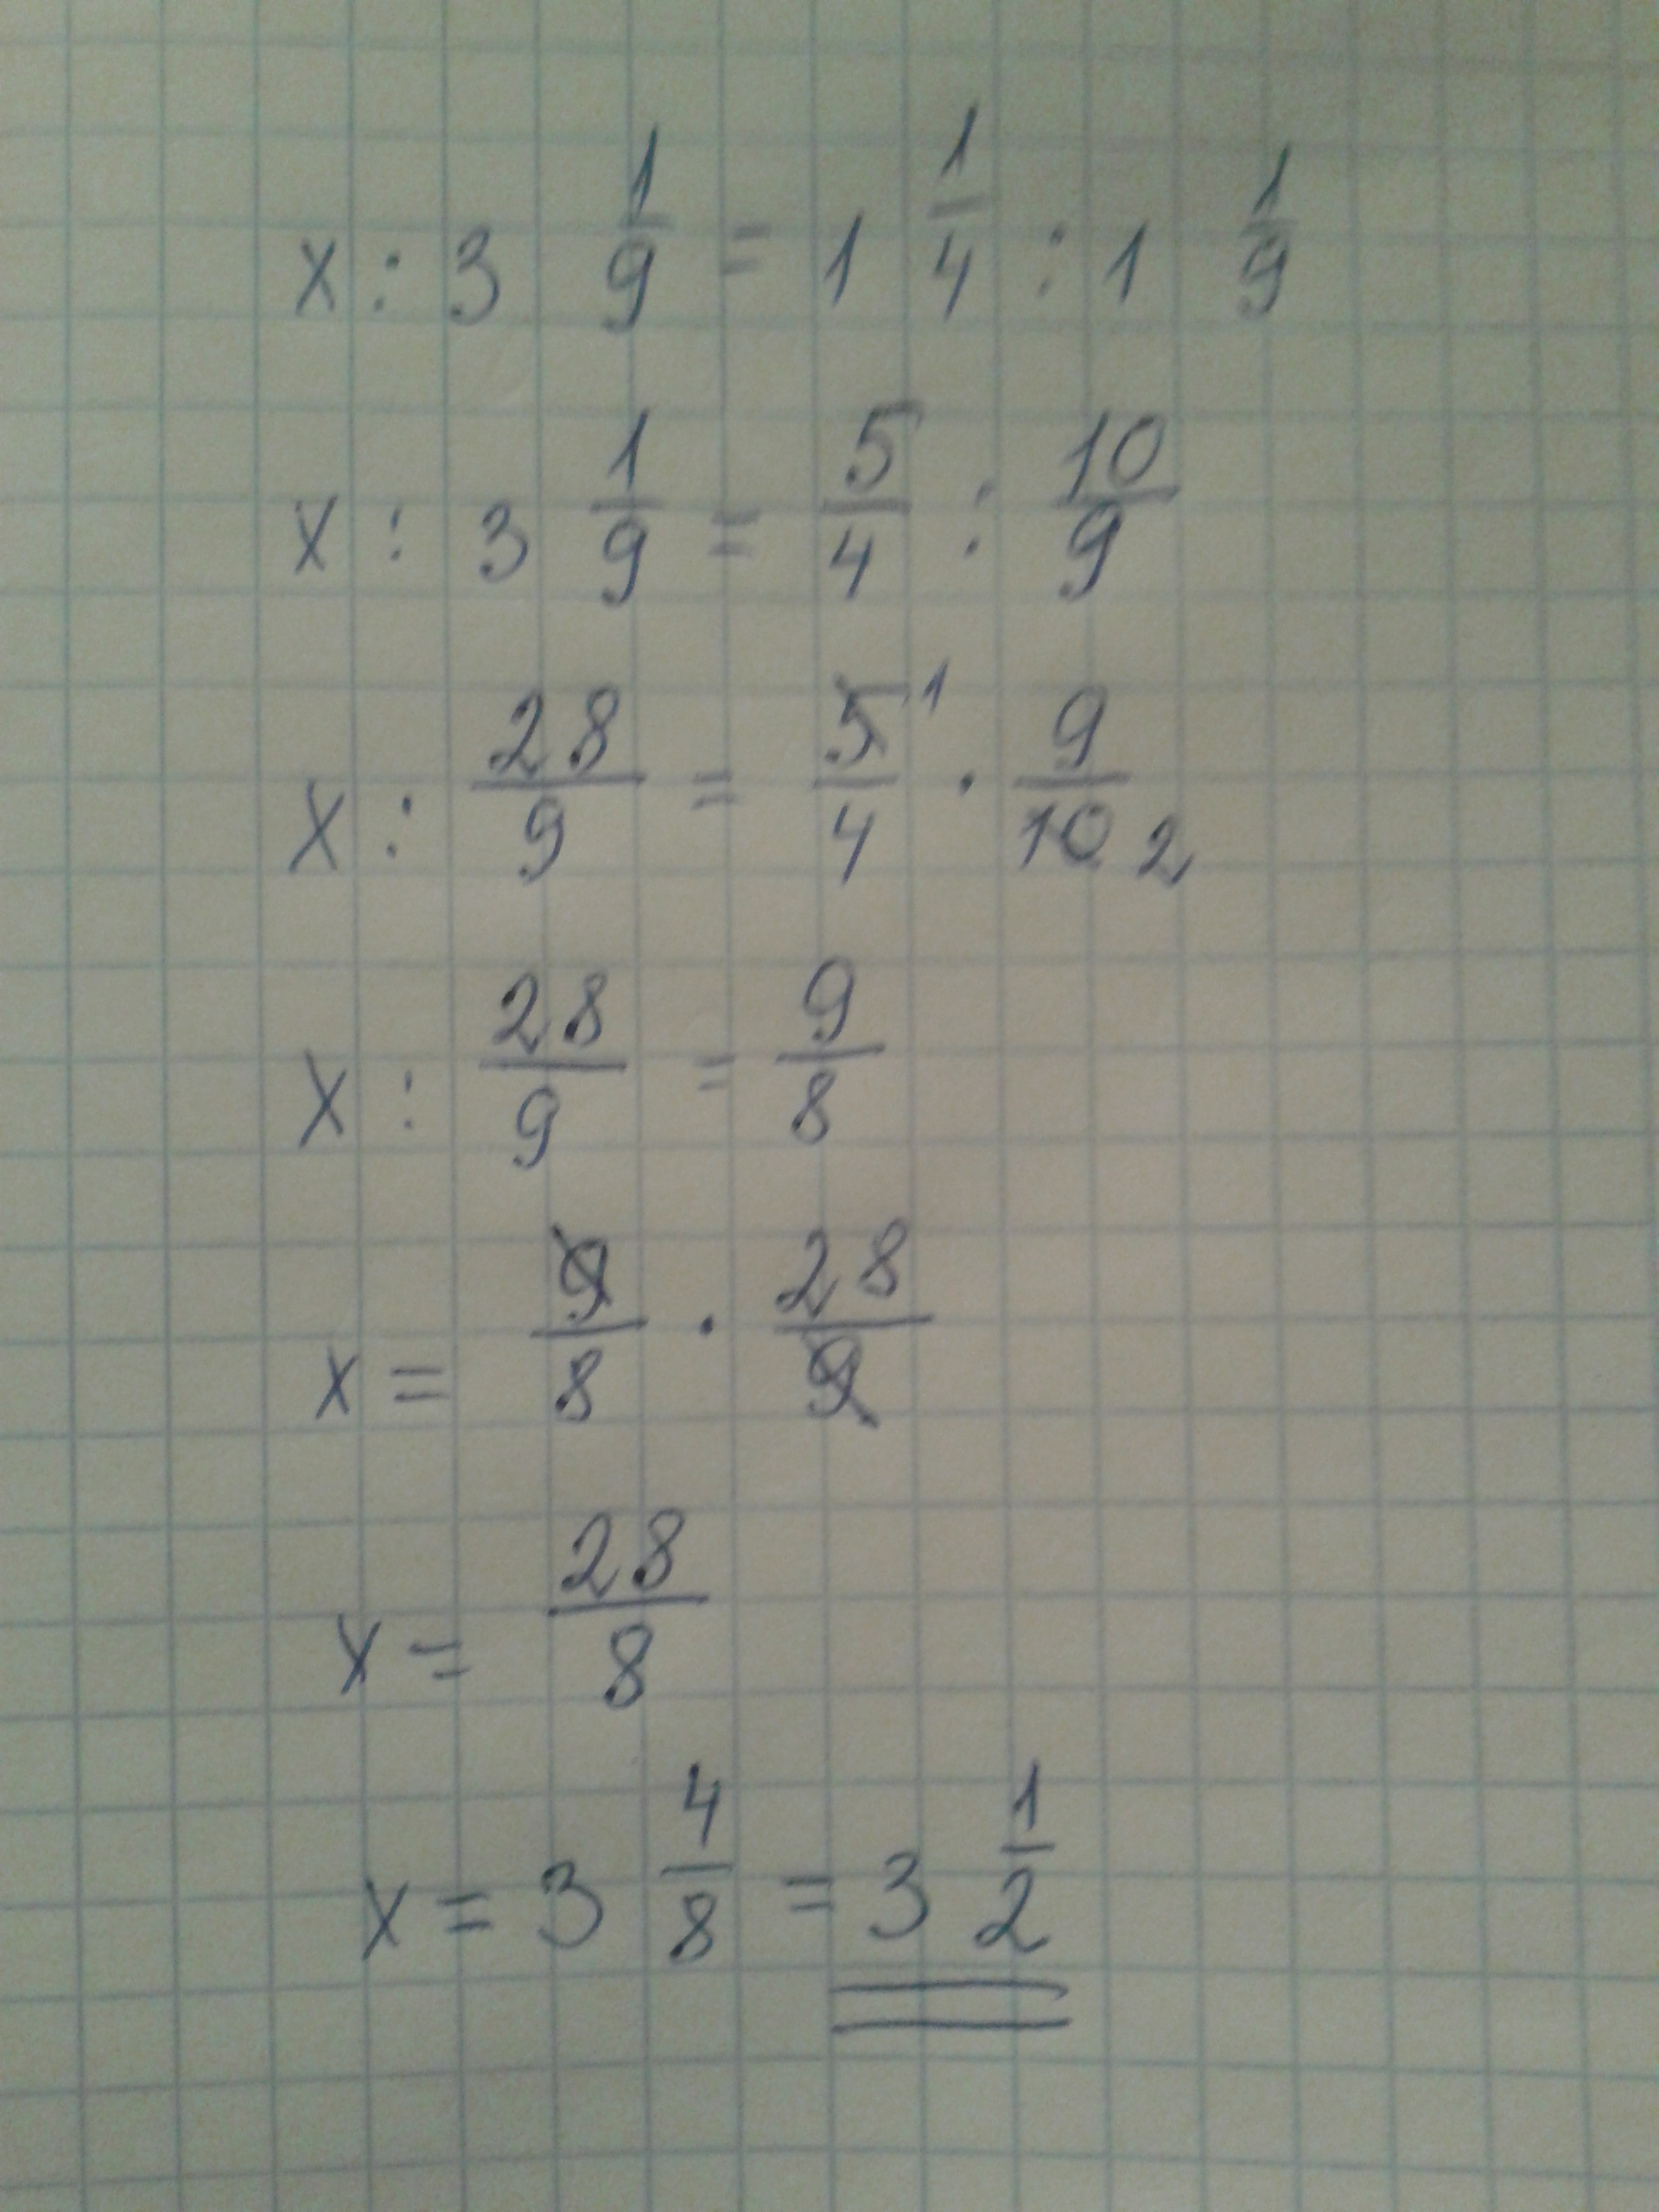 x : 3 1/9 = 1 1/4 : 1 1/9
x : 3 1/9 = 5/4 : 10/9
x : 28/9 = 5/4 1 · 9/10 2
x : 28/9 = 9/8
x = 9/8 · 28/9
x = 28/8
x = 3 4/8 = 3 1/2